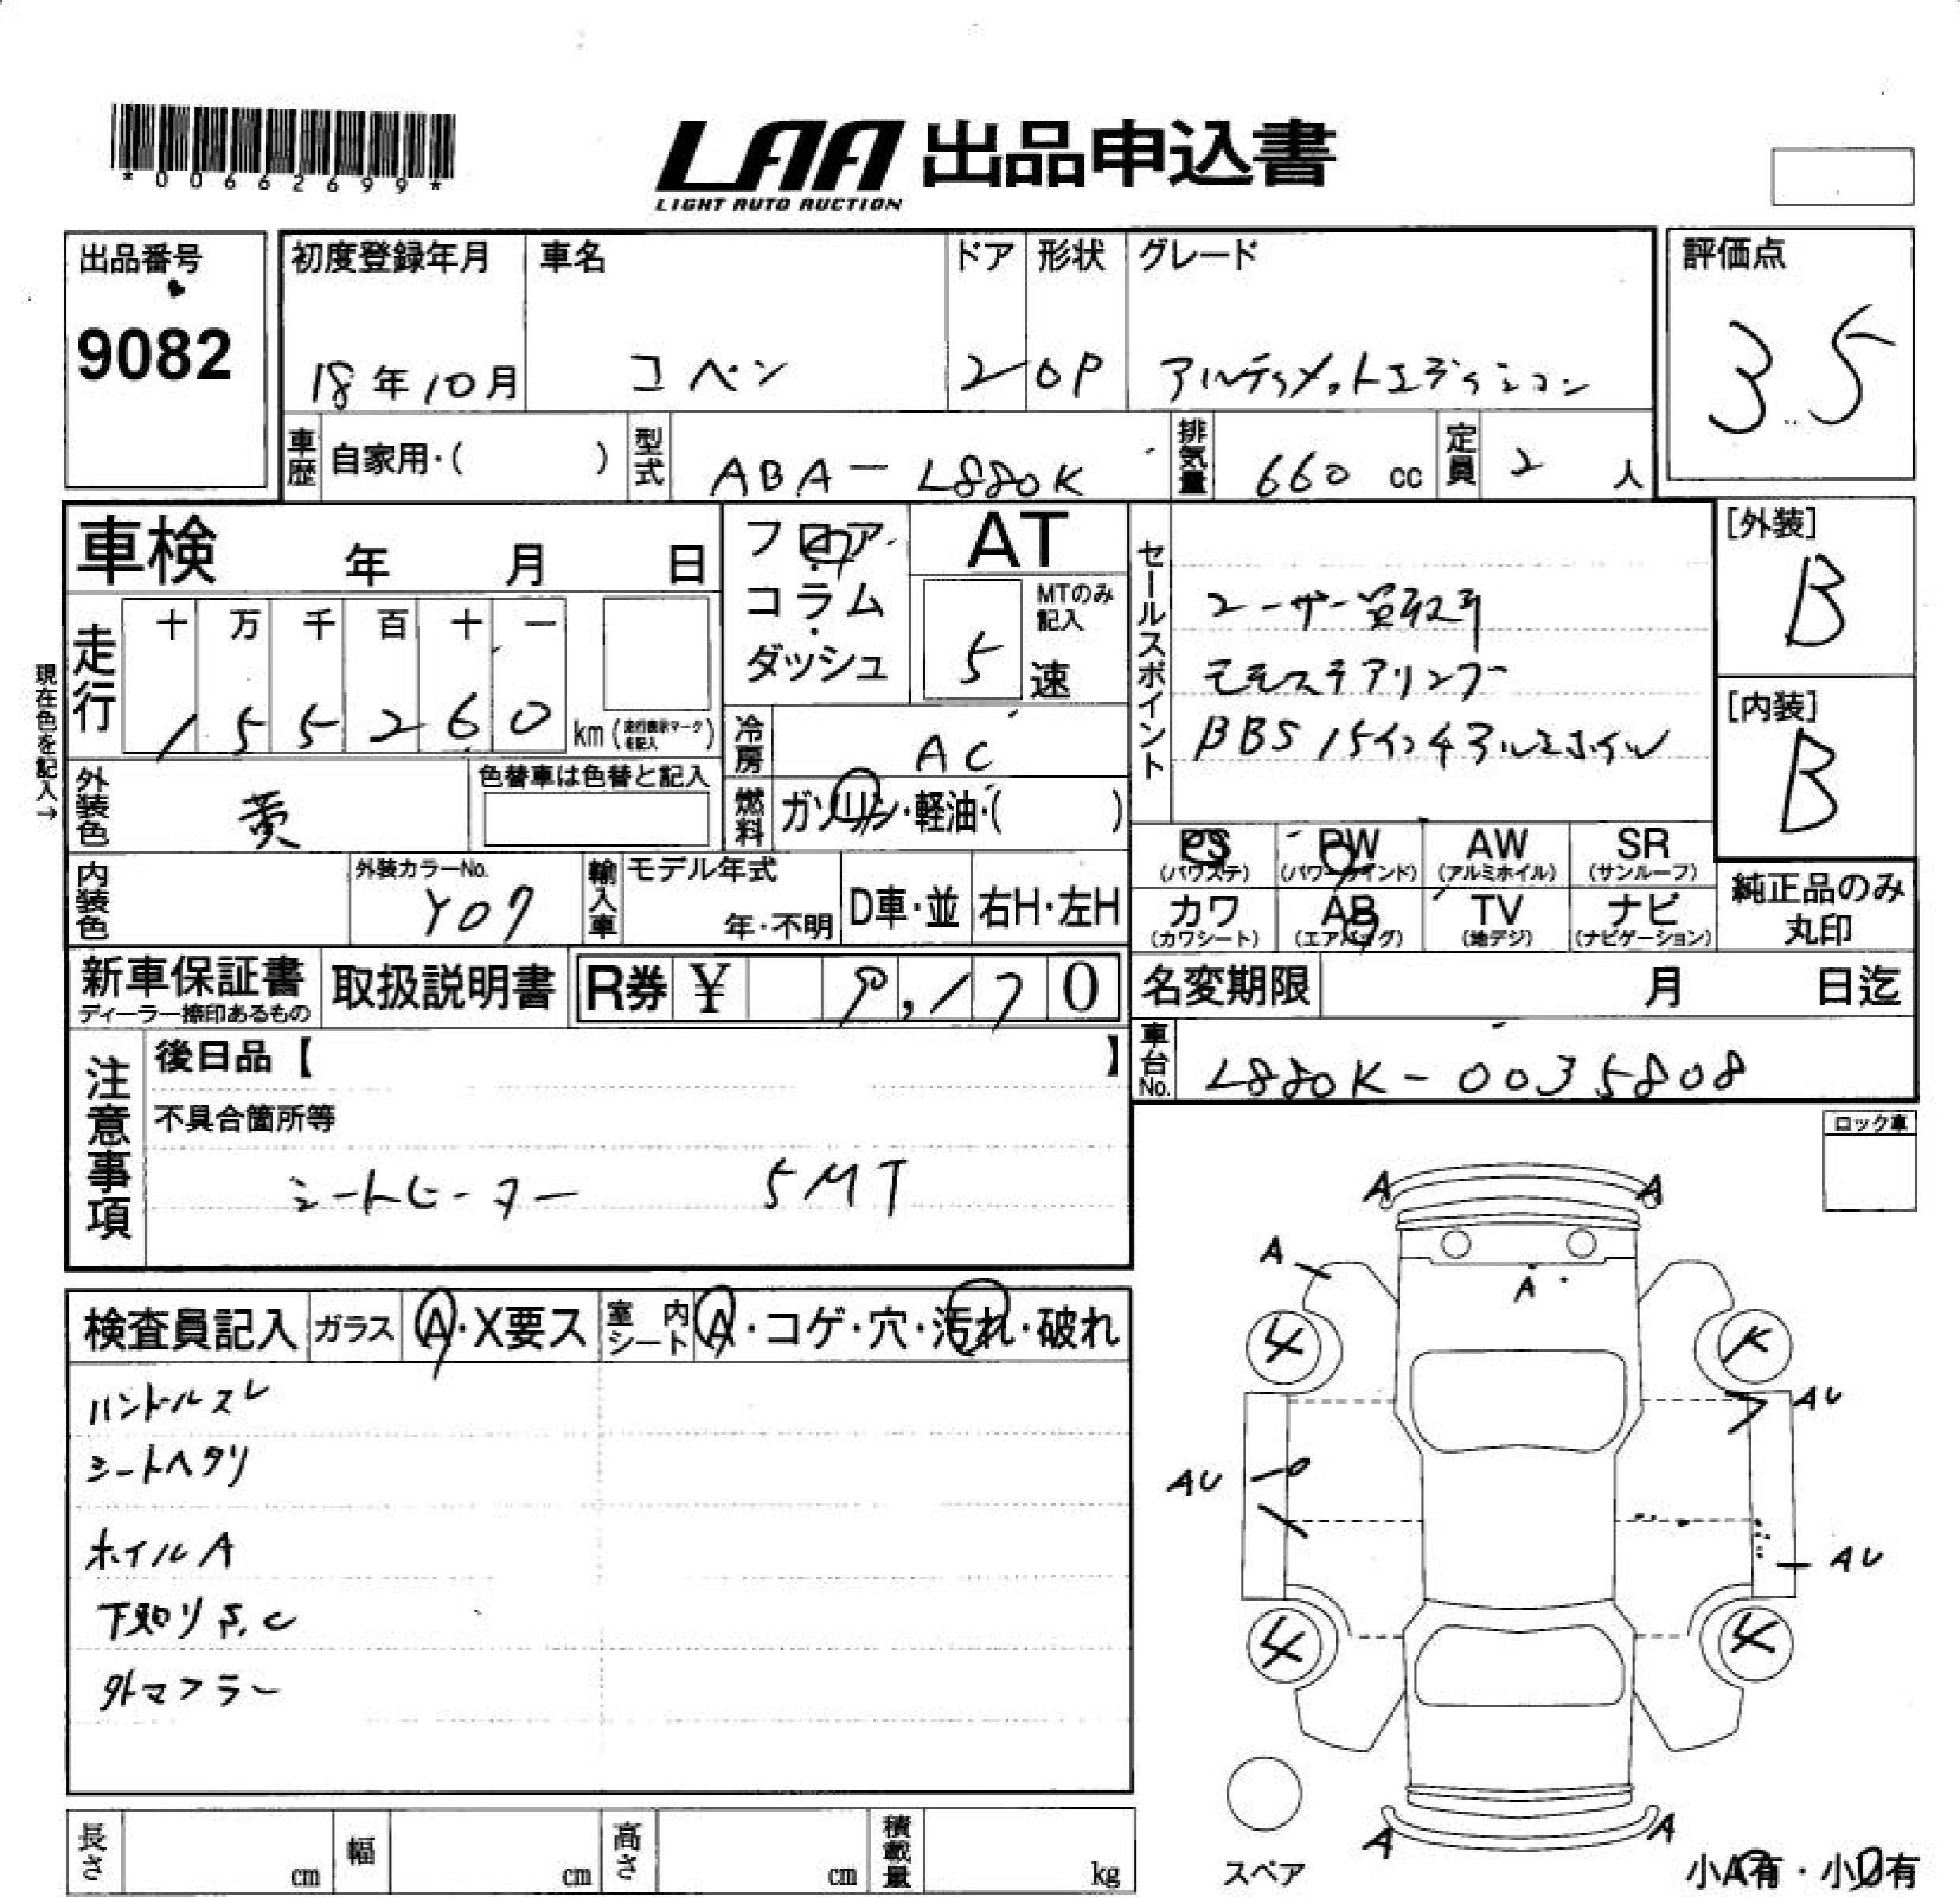 *00662699*
LAA 出品申込書
LIGHT AUTO AUCTION
出品番号
9082
初度登録年月 車名 ドア 形状 グレード
18年10月 コペン 2 OP アルティメットエディション
評価点
3.5
車歴 自家用・( ) 型式 ABA-L880K 排気量 660 cc 定員 2 人
車検 年 月 日
フロア・コラム・ダッシュ
AT
MTのみ記入
5 速
セールスポイント
ユーザー買取車
モモステアリング
BBS 15インチアルミホイル
[外装]
B
[内装]
B
現在色を記入→
走行 十 万 千 百 十 一
1 5 5 2 6 0 km (走行表示マークを記入)
冷房 AC
燃料 ガソリン・軽油・( )
外装色 黄 色替車は色替と記入
内装色 外装カラーNo. Y07
輸入車 モデル年式 年・不明 D車・並 右H・左H
PS (パワステ) PW (パワーウインド) AW (アルミホイル) SR (サンルーフ)
カワ (カワシート) AB (エアバッグ) TV (地デジ) ナビ (ナビゲーション)
純正品のみ丸印
新車保証書 ディーラー捺印あるもの 取扱説明書 R券 ¥ 9,170
名変期限 月 日迄
車台No. L880K-0035808
注意事項
後日品【 】
不具合箇所等
シートヒーター 5MT
ロック車
検査員記入 ガラス A・X要ス 室内シート A・コゲ・穴・汚れ・破れ
ハンドルスレ
シートヘタリ
ホイルA
下廻りS.C
外マフラー
A A
A
A
4
AU
AU
AU
4 4
A A
スペア
小A有・小U有
長さ cm 幅 cm 高さ cm 積載量 kg